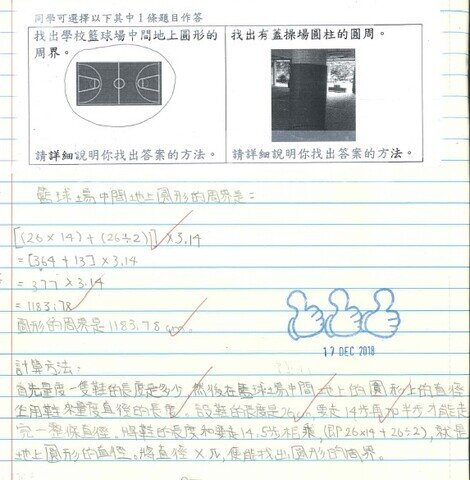 同學可選擇以下其中1條題目作答
找出學校籃球場中間地上圓形的
周界。
請詳細說明你找出答案的方法。
找出有蓋操場圓柱的圓周。
請詳細說明你找出答案的方法。
籃球場中間地上圓形的周界是：
[(26×14)+(26÷2)]×3.14
=[364+13]×3.14
=377×3.14
=1183.78
圓形的周界是1183.78cm。
17 DEC 2018
計算方法：
首先量度一隻鞋的長度是多少，然後在籃球場中間地上的圓形上的直徑
上用鞋來量度直徑的長度。即鞋的長度是26cm，要走14步再加半步才能走
完一整條直徑。將鞋的長度和要走14.5步相乘，(即26×14+26÷2)，就是
地上圓形的直徑。將直徑×π，便能找出圓形的周界。